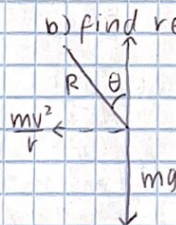 b) find re
R θ
mv²/r
mg